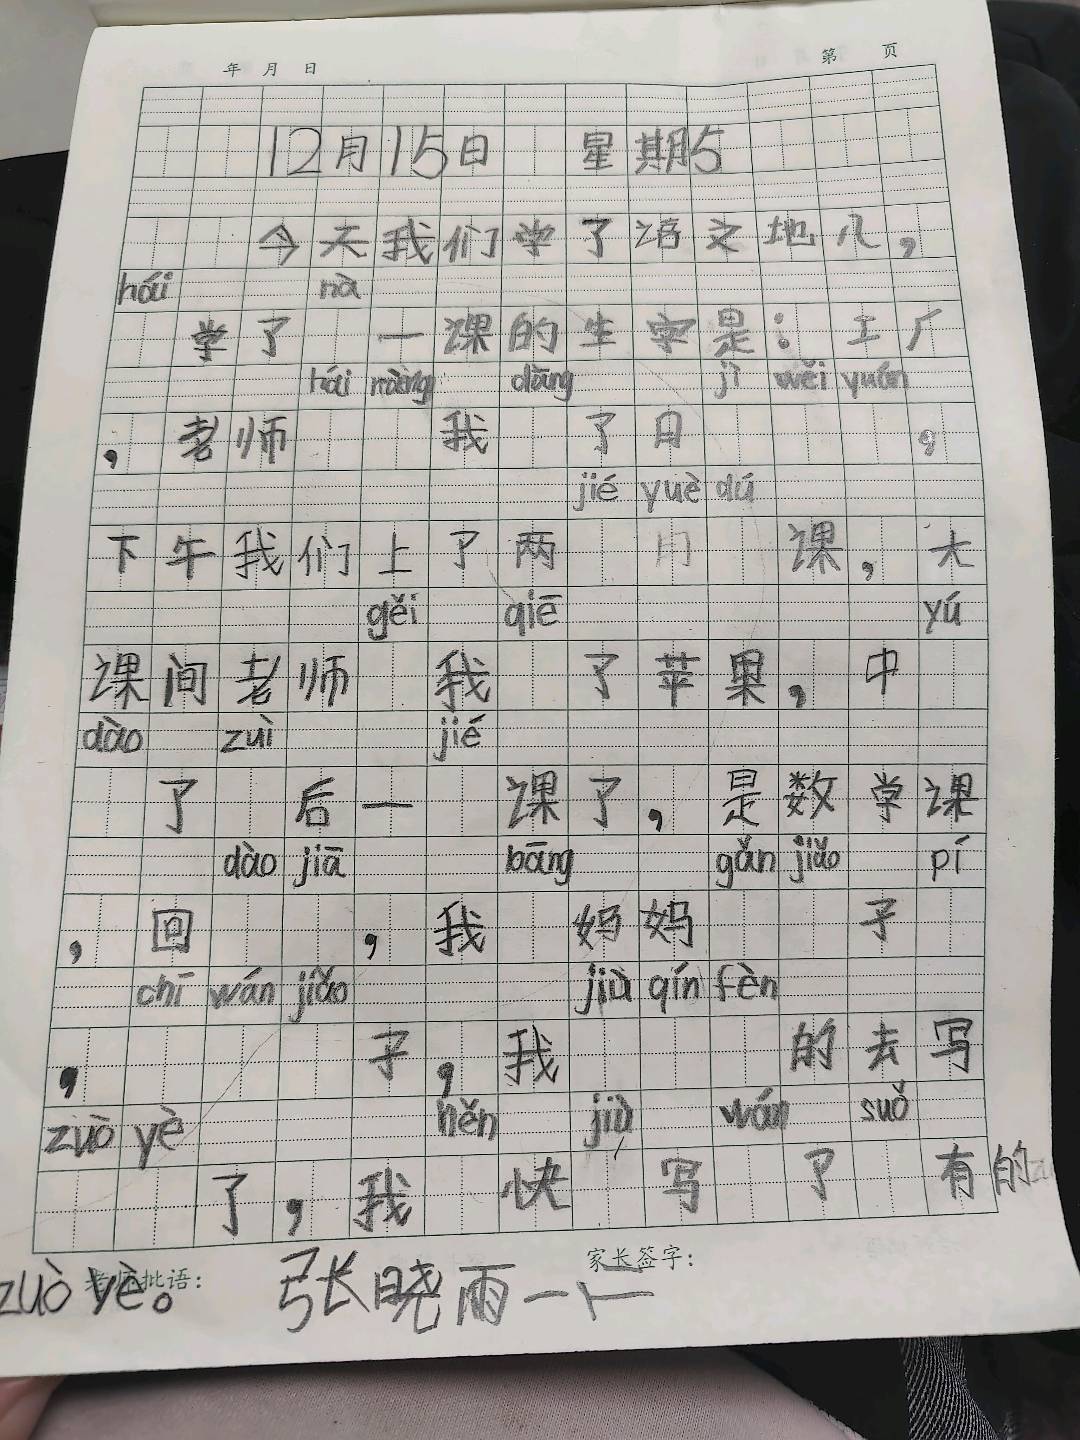 年 月 日 第 页
12月15日 星期5
今天我们学了语文地儿，
hái nà
学了 一课的生字是：工厂
hái ràng dāng jì wěi yuán
，老师 我 了日 。
jié yuè dú
下午我们上了两 门 课，大
gěi qiē yú
课间老师 我 了苹果，中
dào zuì jié
了 后一 课了，是数学课
dào jiā bāng gǎn jiǎo pí
，回 ，我 妈妈 子
chī wán jiǎo jiù qín fèn
， 子，我 的去写
zuò yè hěn jiù wán suǒ
了，我 快 写 了 有的
老师批语： 家长签字：
zuò yè。 张晓雨一下